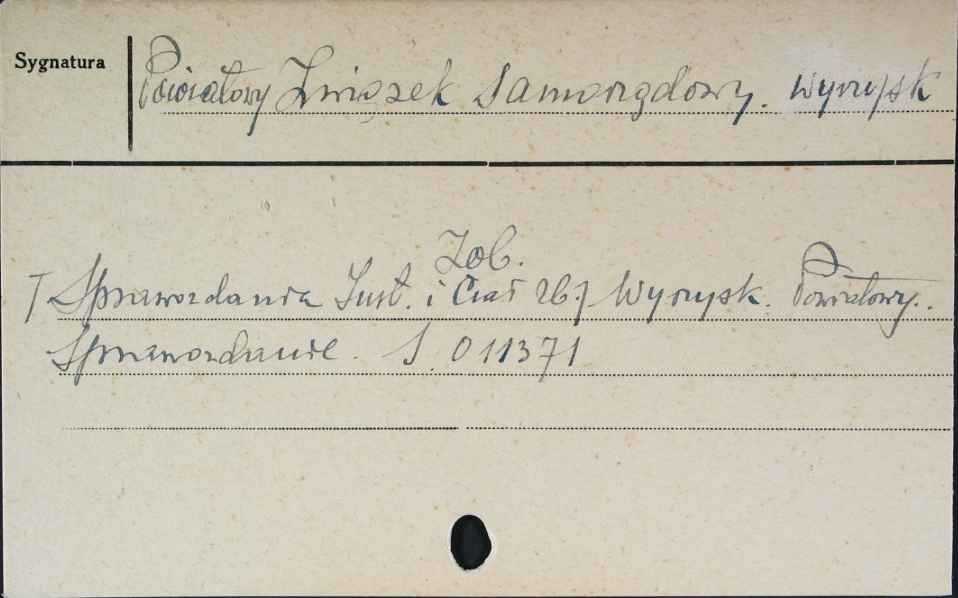 Sygnatura
Powiatowy Związek Samorządowy. Wyrzysk
Zob.
[Sprawozdania Inst. i Ciał zb.] Wyrzysk. Powiatowy..
Sprawozdanie. S. 011371